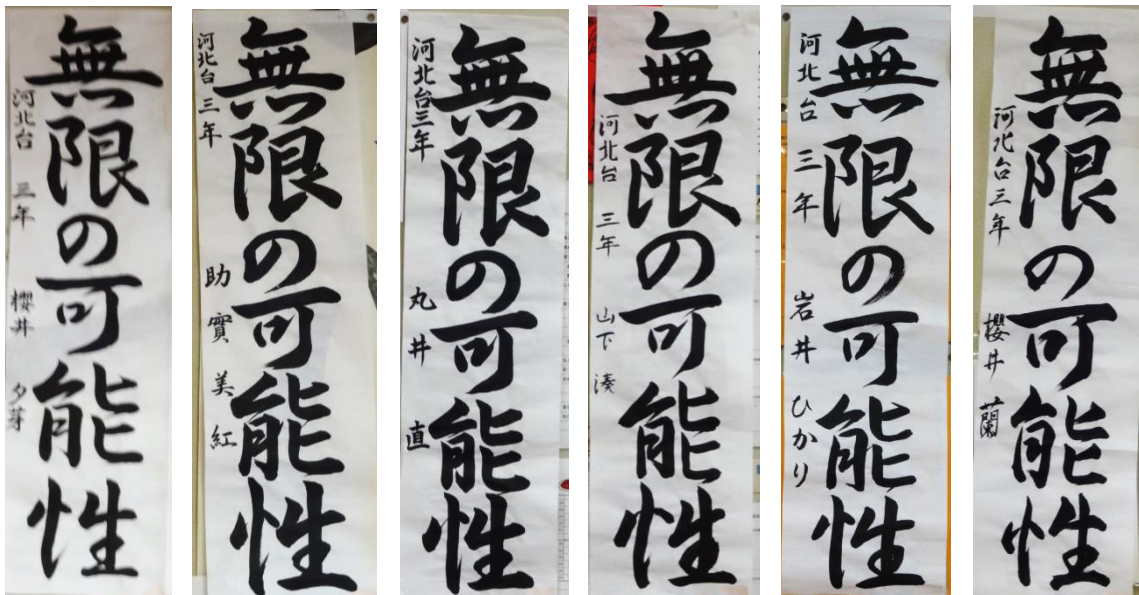 無限の可能性
河北台 三年 櫻井 夕芽
無限の可能性
河北台三年 助實 美紅
無限の可能性
河北台三年 丸井 直
無限の可能性
河北台 三年 山下 湊
無限の可能性
河北台 三年 岩井 ひかり
無限の可能性
河北台三年 櫻井 蘭